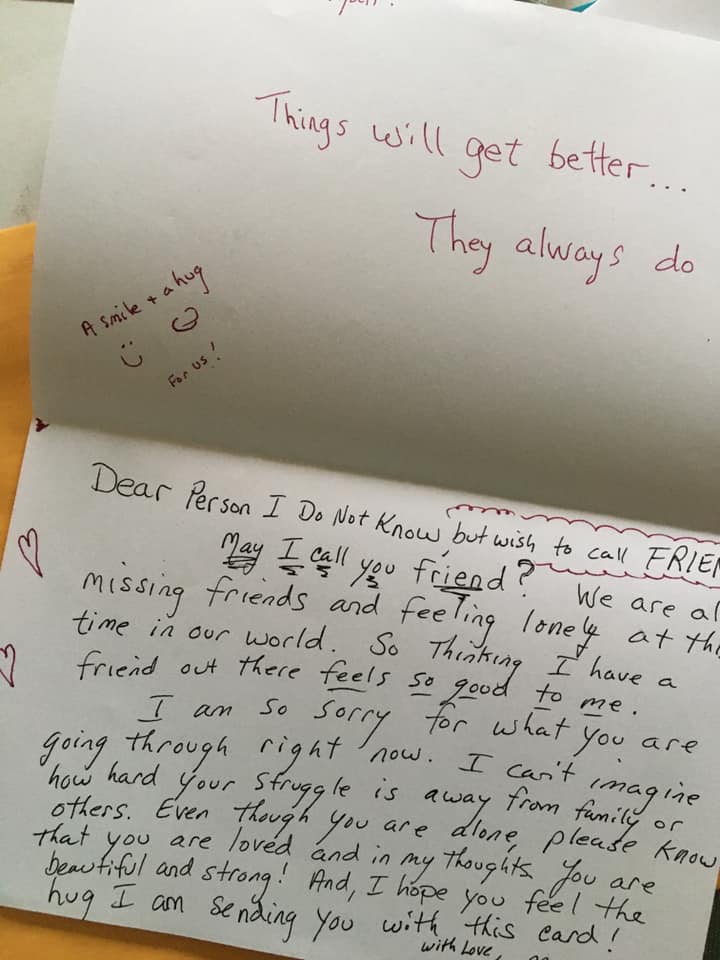 Things will get better...
They always do
A smile + a hug
For us!
Dear Person I Do Not Know but wish to call FRIEN
May I call you friend? We are al
missing friends and feeling lonely at thi
time in our world. So Thinking I have a
friend out there feels so good to me.
I am so sorry for what you are
going through right now. I can't imagine
how hard your struggle is away from family or
others. Even though you are alone, please know
that you are loved and in my thoughts. You are
beautiful and strong! And, I hope you feel the
hug I am sending you with this card!
with Love,